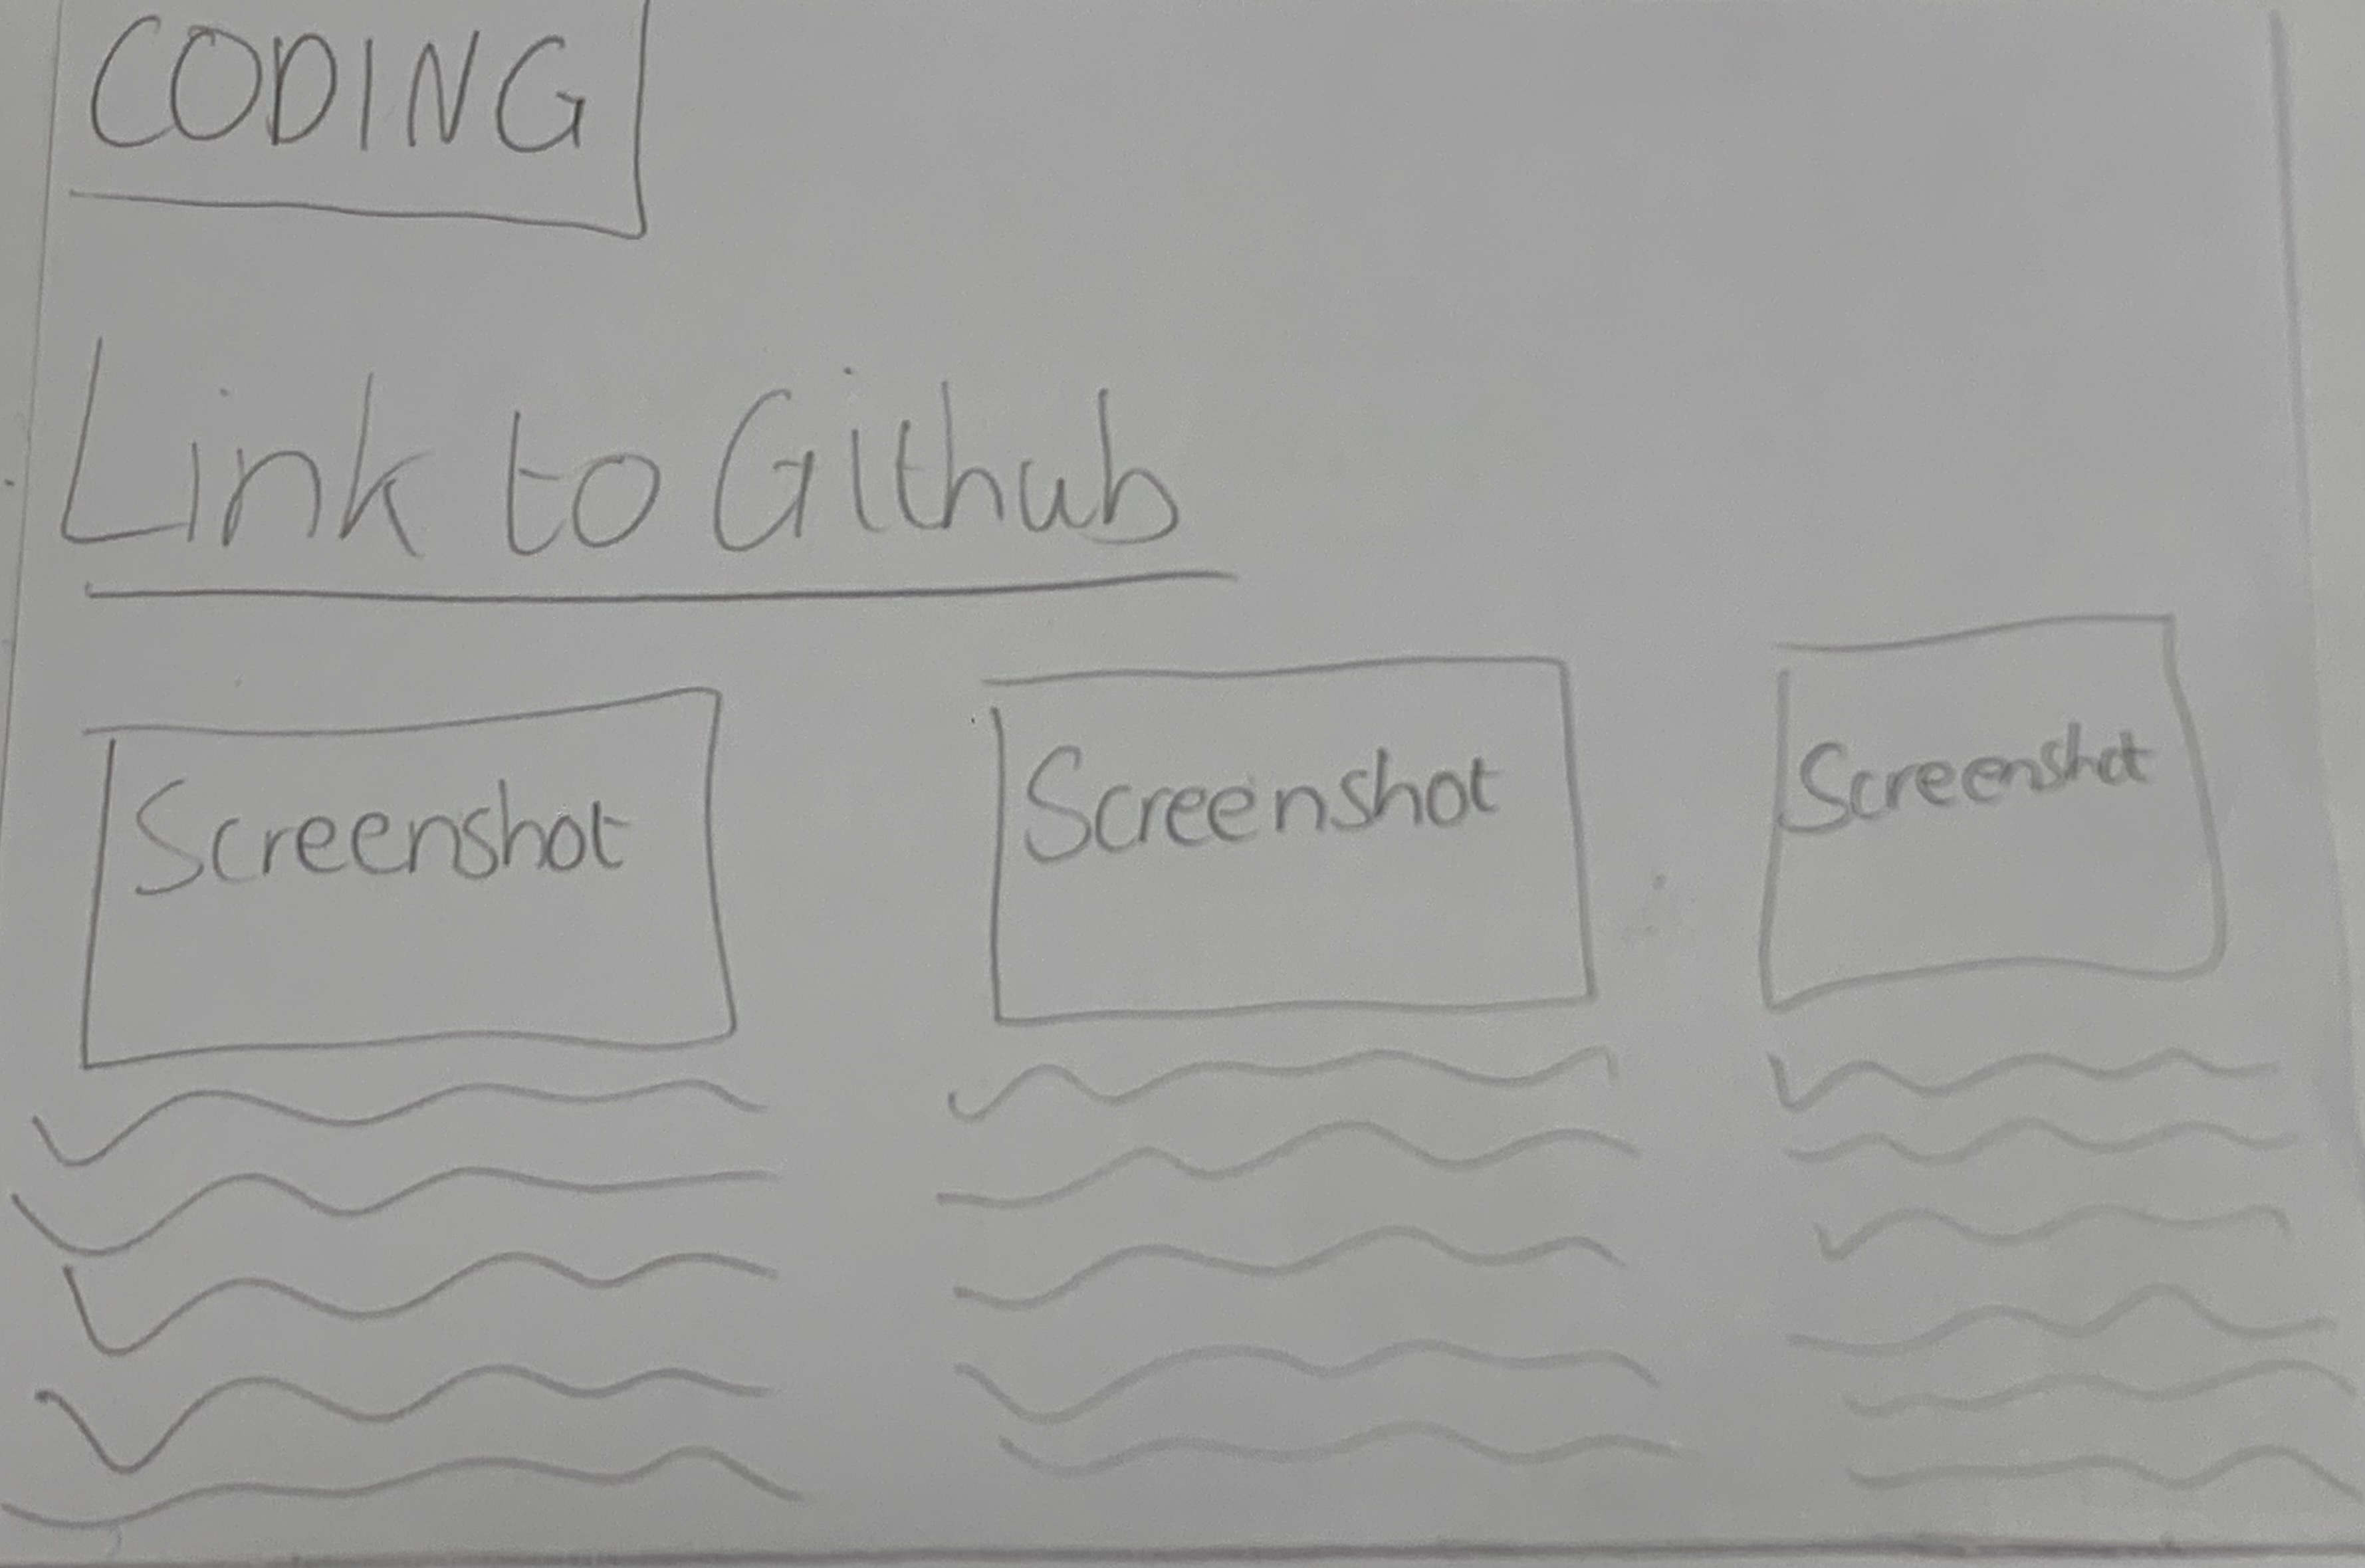 CODING
Link to Github
Screenshot Screenshot Screenshot